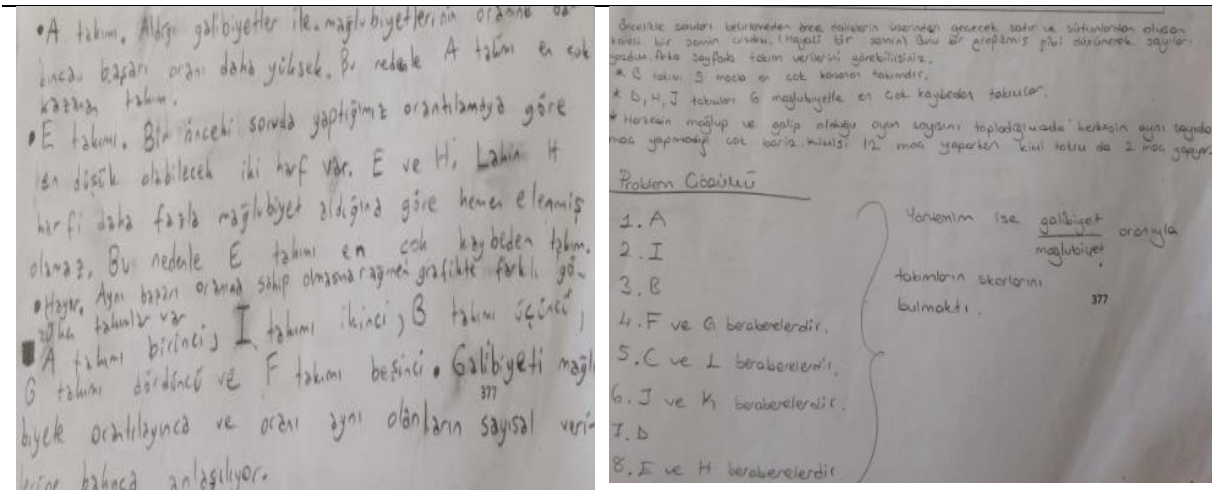 •A takımı. Aldığı galibiyetler ile mağlubiyetlerinin oranına ba-
kınca, başarı oranı daha yüksek. Bu nedenle A takımı en çok
kazanan takım.
•E takımı. Bir önceki soruda yaptığımız orantılamaya göre
en düşük olabilecek iki harf var. E ve H. Lakin H
harfi daha fazla mağlubiyet aldığına göre hemen elenmiş
olamaz. Bu nedenle E takımı en çok kaybeden takım.
•Hayır. Aynı başarı oranına sahip olmasına rağmen grafikte farklı gö-
takımlar var
A takımı birinci, I takımı ikinci, B takımı üçüncü,
G takımı dördüncü ve F takımı beşinci. Galibiyeti mağlu
377
biyete orantılayınca ve oranı aynı olanların sayısal veri-
lerine bakınca anlaşılıyor.
Öncelikle soruları belirlemeden önce dairelerin üzerinden geçecek satır ve sütunlardan oluşan
kareli bir zemin çizdik. (Hayali bir zemin) Bunu bir grafikmiş gibi düşünerek sayıları
yazdık. Arka sayfada takım verilerini görebilirsiniz.
* G takımı 5 maçla en çok kazanan takımdır.
* D, H, J takımları 6 mağlubiyetle en çok kaybeden takımlar.
* Herkesin mağlup ve galip olduğu oyun sayısını topladığımızda herkesin aynı sayıda
maç yapmadığı çok bariz. Kimisi 12 maç yaparken kimi takım da 2 maç yapıyor.
Problem Çözümü
1. A
2. I
3. B
4. F ve G beraberelerdir.
5. C ve L beraberelerdir.
6. J ve K beraberelerdir.
7. D
8. E ve H beraberelerdir.
Yöntemim ise galibiyet oranıyla
mağlubiyet
takımların skorlarını
bulmaktı.
377